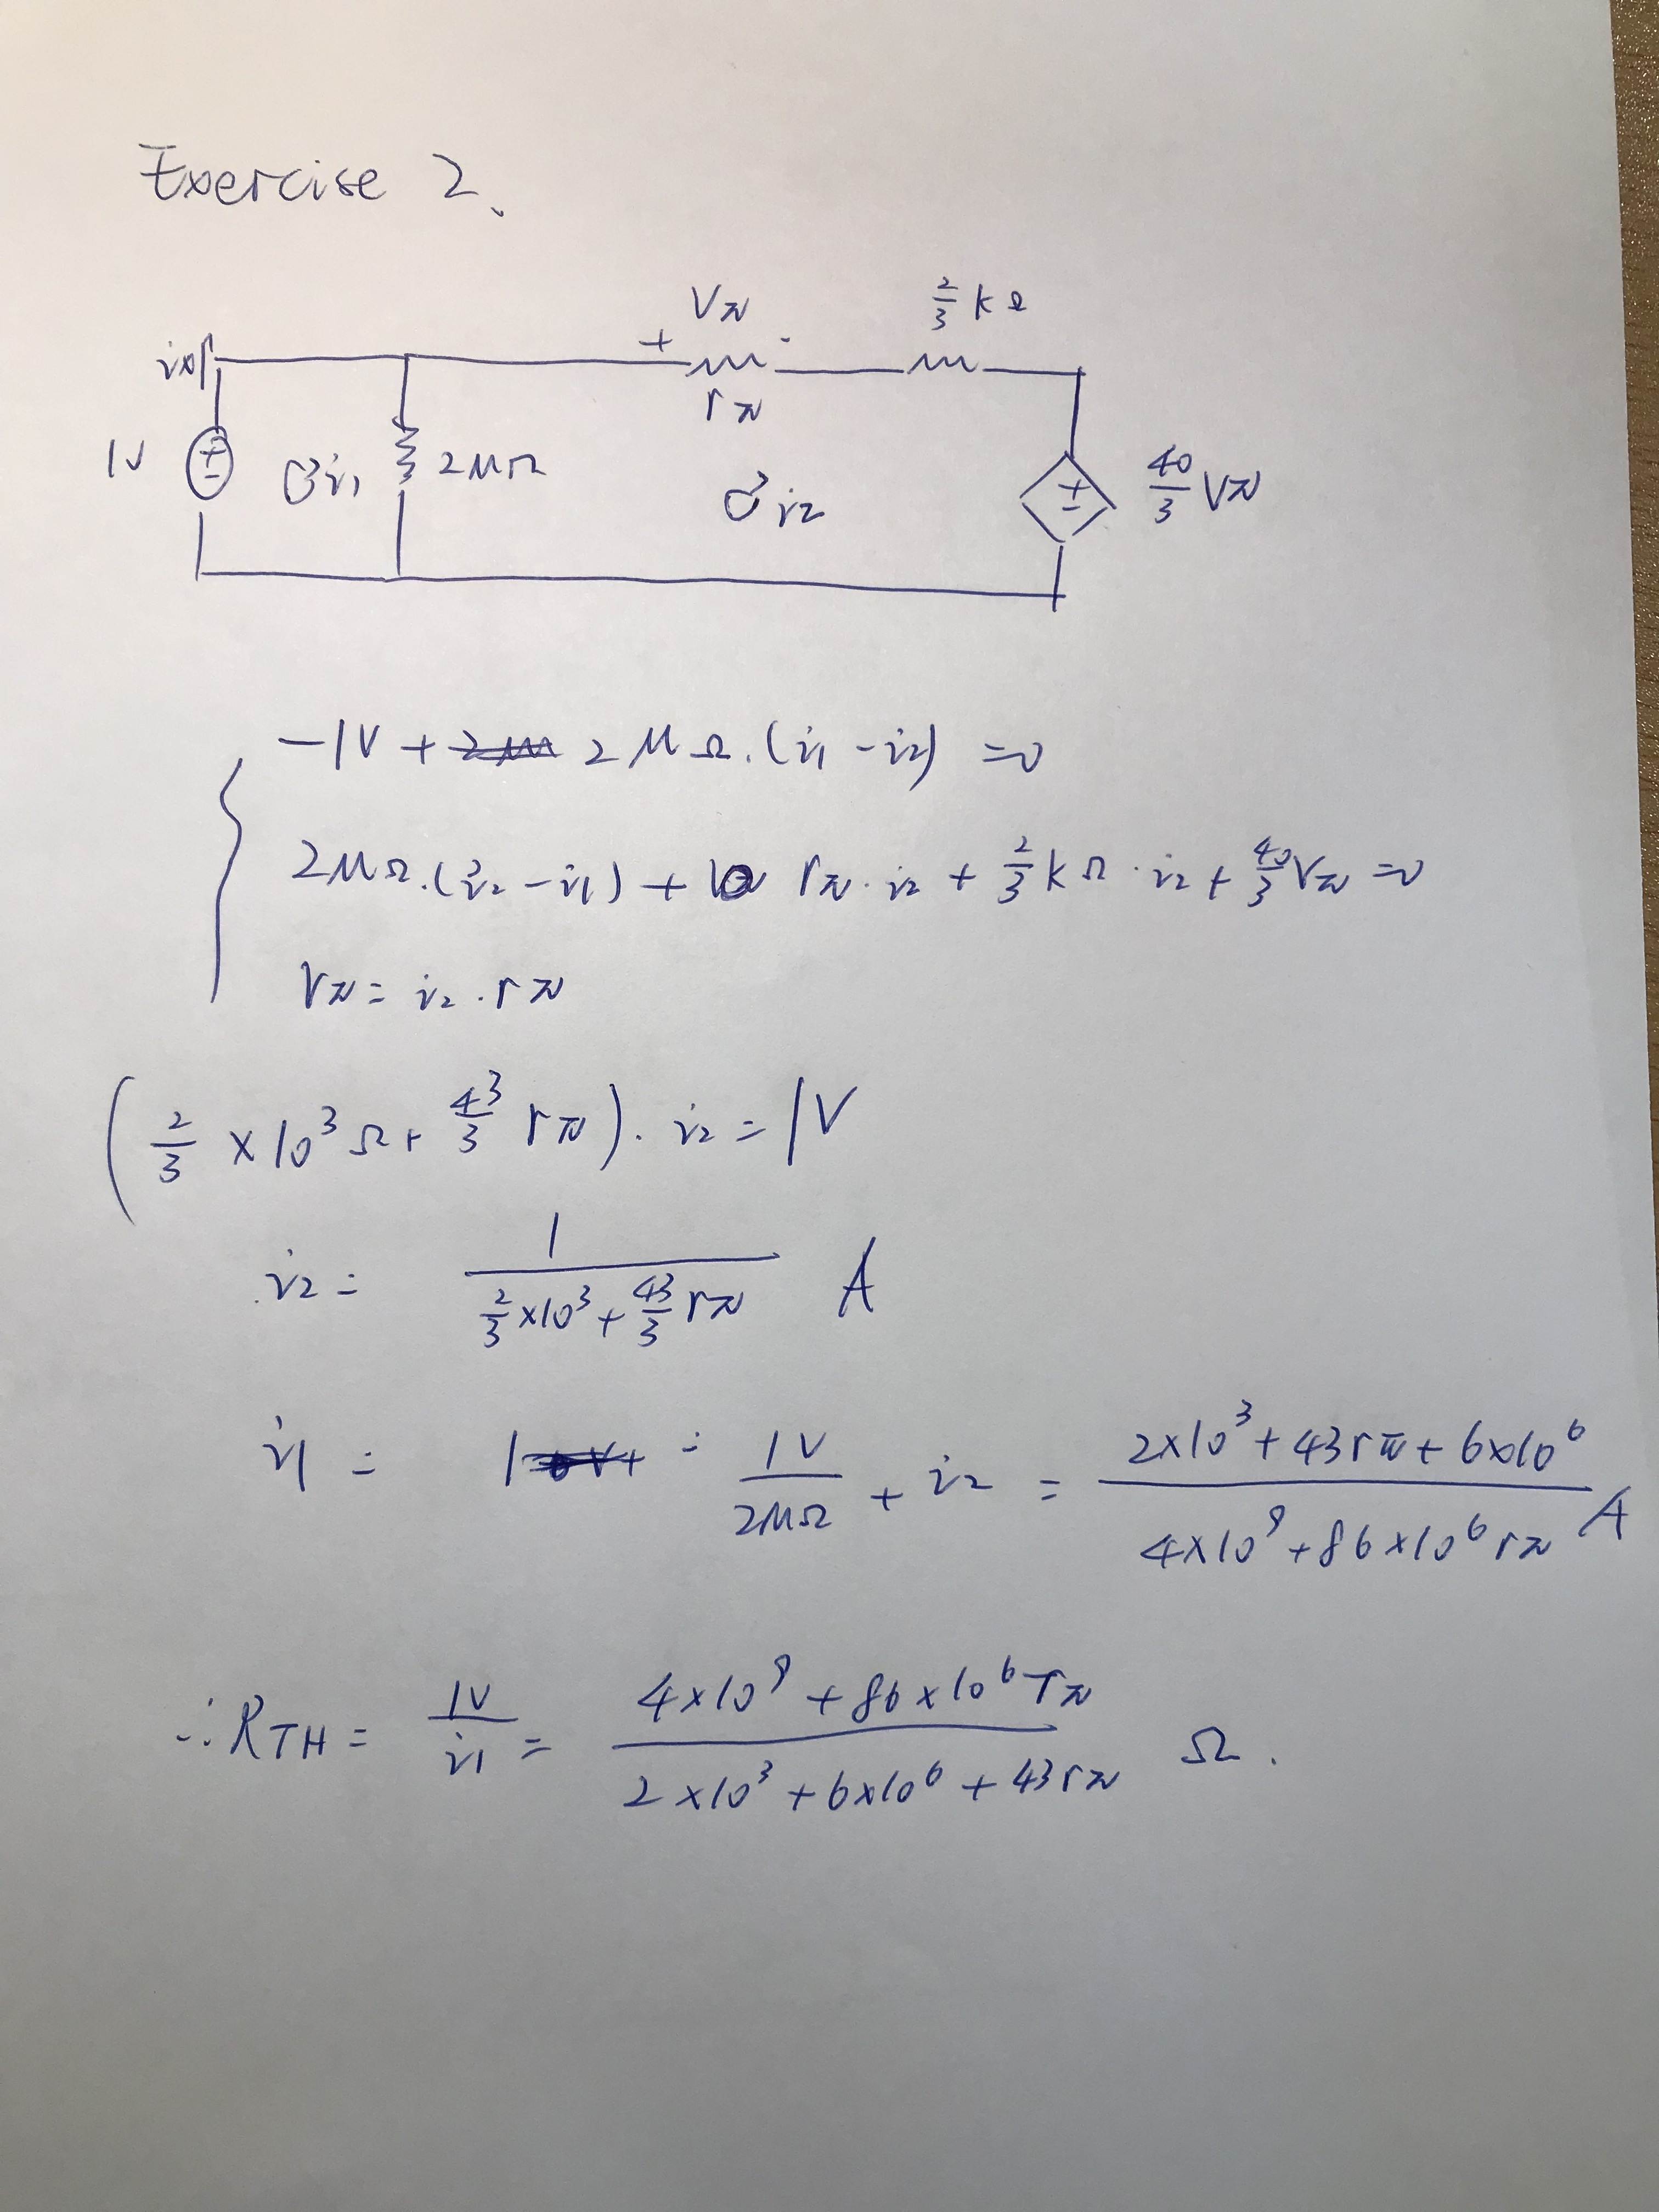 Exercise 2、
Vπ 2/3 kΩ
ix + -
rπ
1V i1 2MΩ i2 + - 40/3 Vπ
-1V + 2MΩ.(i1 - i2) = 0
2MΩ.(i2 - i1) + rπ · i2 + 2/3 kΩ · i2 + 40/3 Vπ = 0
Vπ = i2 · rπ
(2/3 × 10³ Ω + 43/3 rπ) · i2 = 1V
i2 = 1 / (2/3 × 10³ + 43/3 rπ) A
i1 = = 1V / 2MΩ + i2 = (2×10³ + 43rπ + 6×10⁶) / (4×10⁹ + 86×10⁶ rπ) A
∴ RTH = 1V / i1 = (4×10⁹ + 86×10⁶ rπ) / (2×10³ + 6×10⁶ + 43rπ) Ω.